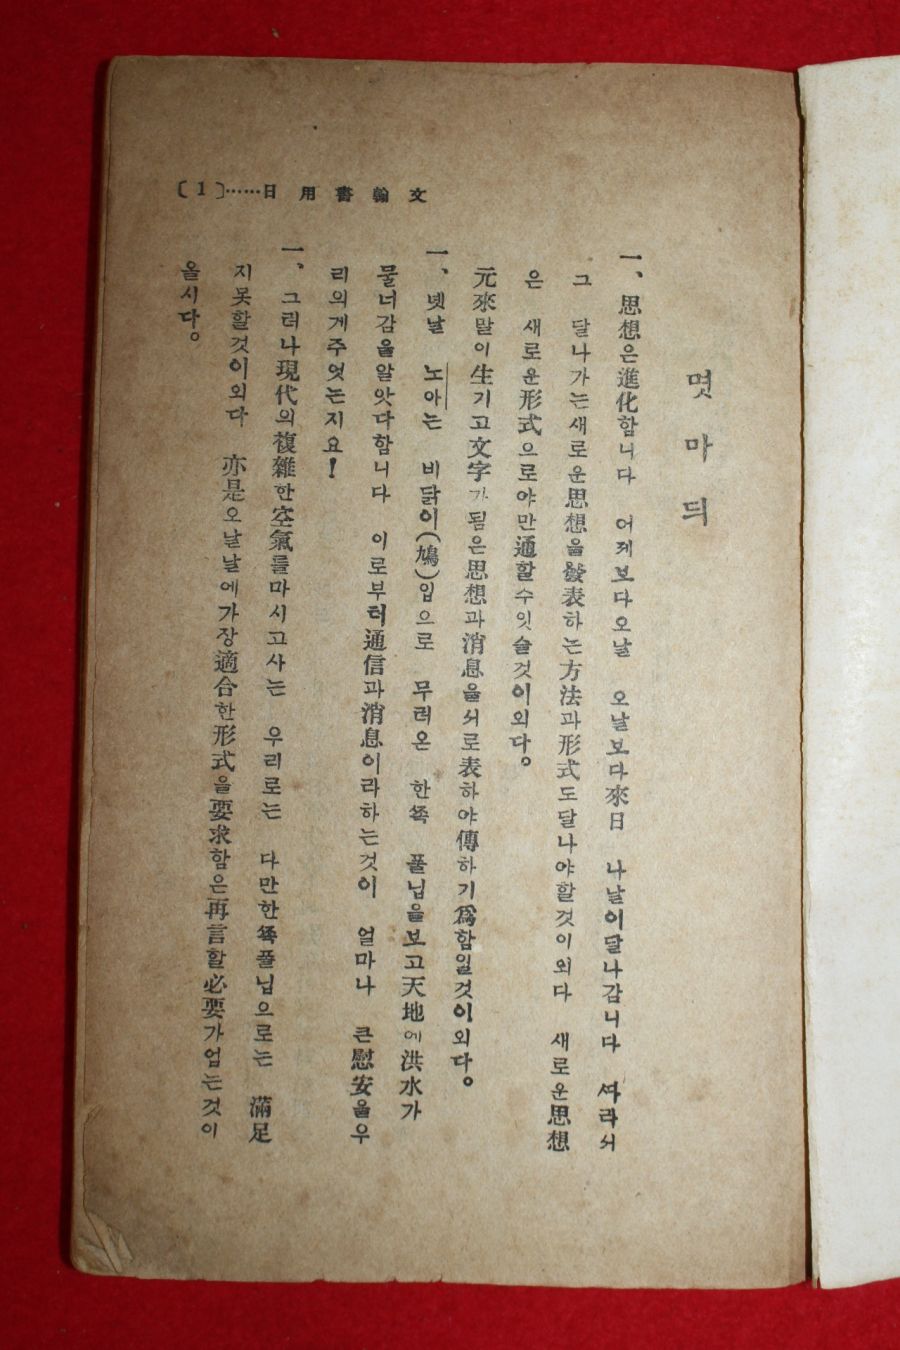 몃 마 듸
一、思想은進化함니다 어제보다오날 오날보다來日 나날이달나감니다 ᄯᅡ라서
그 달나가는새로운思想을發表하는方法과形式도달나야할것이외다 새로운思想
은 새로운形式으로야만通할수잇슬것이외다。
元來말이生기고文字가됨은思想과消息을서로表하야傳하기爲함일것이외다。
一、녯날 노아는 비닭이(鳩)입으로 무러온 한ᄶᅩᆨ 풀닙을보고天地에洪水가
물너감을알앗다함니다 이로부터通信과消息이라하는것이 얼마나 큰慰安을우
리의게주엇는지요!
一、그러나現代의複雜한空氣를마시고사는 우리로는 다만한ᄶᅩᆨ풀닙으로는 滿足
지못할것이외다 亦是오날날에가장適合한形式을要求함은再言할必要가업는것이
올시다。
〔1〕……日用書翰文